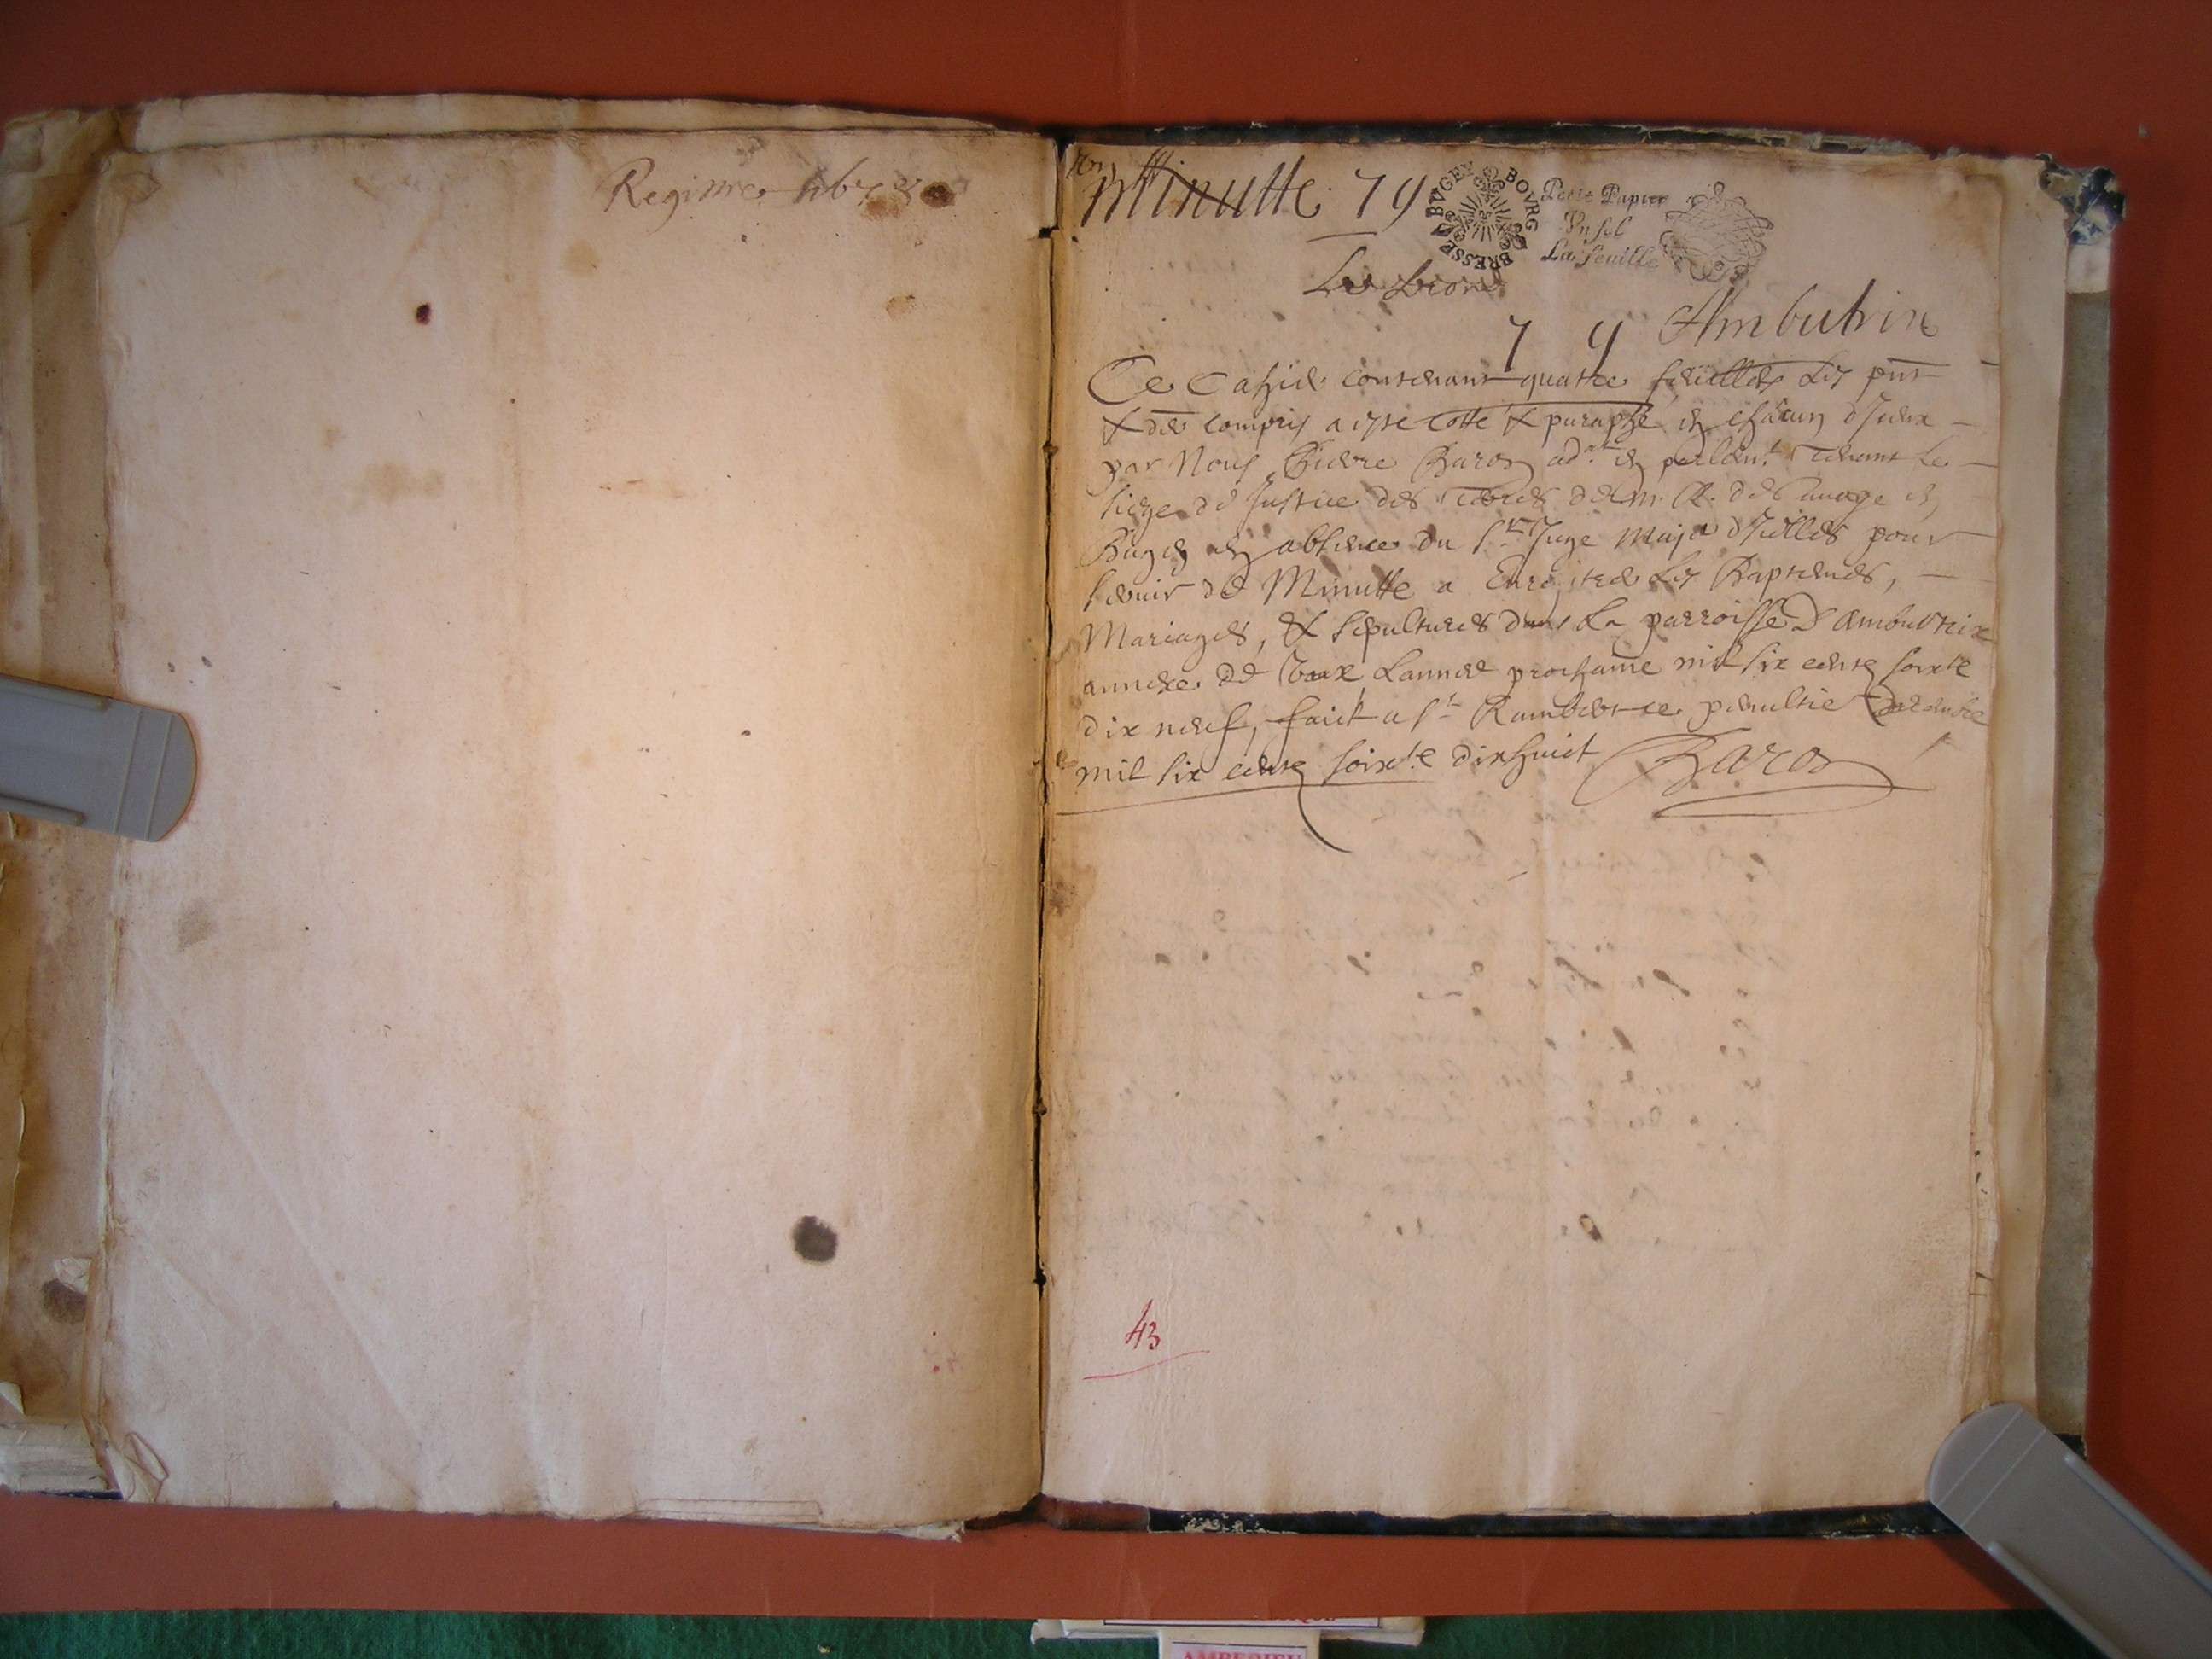 Registre 1678
Minutte 79
BVGEY BOVRG BRESSE
Petit Papier
Vn sol
La feuille
79 Ambutrix
Ce Cahier contenant quatre feuillets les pnt
& der compris a esté cotté & paraphé en chacun d'iceux
par Nous Pierre Baron adat en parlemt tenant le
siege de Justice des terres de M. R. de Sauoye en
Bugey en absence du Sr Juge Maje d'icelles pour
seruir de Minutte a Enregistrer les Baptemes,
Mariages, & sepultures dans la parroisse d'Ambutrix
annexe de Vaux L'annee prochaine mil six cents soixte
dix neuf, faict a St Rambert ce penultie Decembre
mil six cents soixte dix huict Baron
43